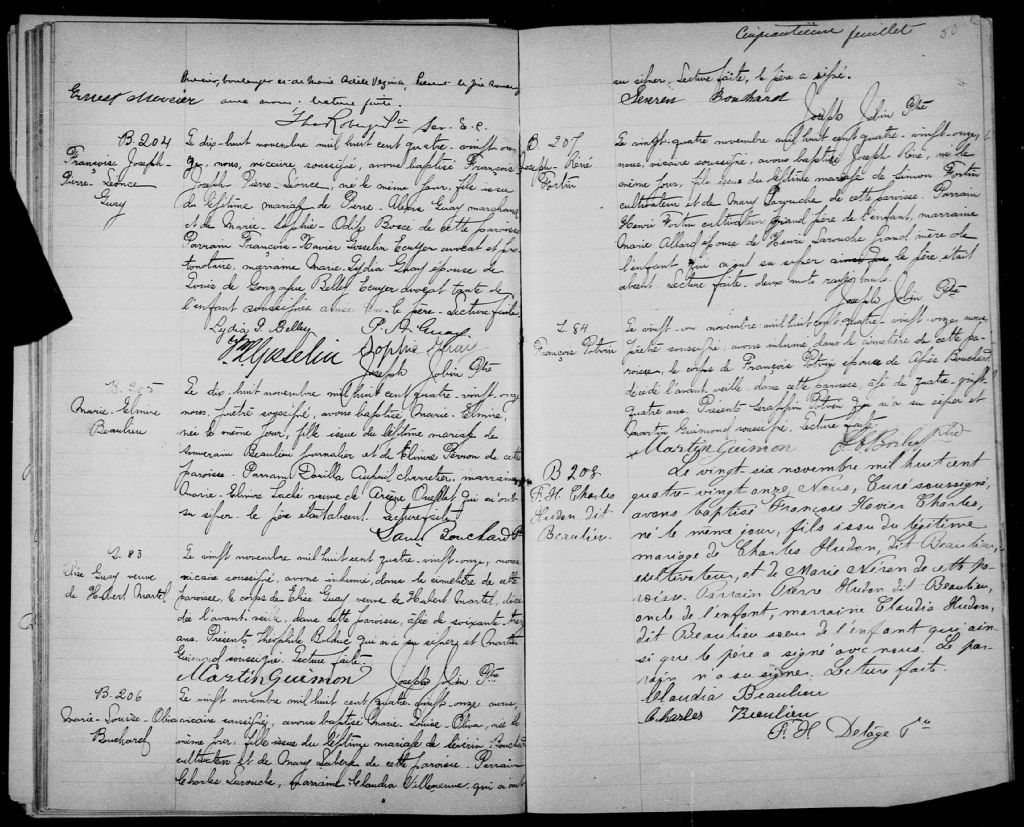 Cinquantième feuillet 50
Mercier, boulanger et de Marie Adèle Vezina, Present le père
Ernest Mercier
avec nous. Lecture faite.
B. 204
François Joseph-
Pierre-Léonce
Guay
Le dix-huit novembre mil huit cent quatre-vingt-on-
ze, nous, vicaire soussigné, avons baptisé François
Joseph-Pierre-Léonce, né le même jour, fils issu
du légitime mariage de Pierre-Alexis Guay marchand
et de Marie-Sophie-Odile Bossé de cette paroisse
Parrain François-Xavier Gosselin Ecuyer avocat et pro-
tonotaire, marraine Marie-Lydia Guay épouse de
Louis de Gonzague Belley Ecuyer avocat tante de
l'enfant soussignés ainsi que le père. Lecture faite
Lydia G. Belley P. A. Guay
Gosselin Sophie Guay
Joseph Jobin Ptre
B. 205
Marie-Elmire
Beaulieu
Le dix-huit novembre mil huit cent quatre-vingt-onze
nous, prêtre soussigné, avons baptisé Marie-Elmire,
née le même jour, fille issue du légitime mariage de
Beaulieu journalier et de Elmire Perron de cette
paroisse. Parrain charretier, marraine
Marie-Elmire veuve de Arsène Ouellet qui n'ont
su signer. le père étant absent. Lecture faite
Bouchard Ptre
S. 83
Elise Guay veuve
de Hubert Martel
Le vingt novembre mil huit cent quatre-vingt-onze, nous
vicaire soussigné, avons inhumé, dans le cimetière de cette
paroisse, le corps de Elise Guay veuve de Hubert Martel, décé-
dée l'avant-veille, dans cette paroisse, âgée de soixante-
ans. Présents Théophile Bolduc qui n'a su signer et Martin
Guimond soussigné. Lecture faite.
Martin Guimon Joseph Jobin Ptre
B. 206
Marie-Louise-Oliva
Bouchard
Le vingt novembre mil huit cent quatre-vingt-onze nous,
vicaire soussigné, avons baptisé Marie-Louise-Oliva, née le
même jour, fille issue du légitime mariage de Sévérin Bouchard
cultivateur et de Mary de cette paroisse. Parrain
Charles Larouche, marraine Claudia Villeneuve, qui n'ont
su signer, Lecture faite, le père a signé.
Severin Bouchard
Joseph Jobin Ptre
B. 207
Joseph-René
Fortin
Le vingt-quatre novembre mil huit cent quatre-vingt-onze,
nous, vicaire soussigné, avons baptisé Joseph-René, né le
même jour, fils issu du légitime mariage de Simon Fortin
cultivateur et de Mary Larouche de cette paroisse. Parrain
Henri Fortin cultivateur grand père de l'enfant, marraine
Marie Allard épouse de Henri Larouche grand mère de
l'enfant qui n'ont su signer ainsi que le père était
absent. Lecture faite. deux mots rayés nuls.
Joseph Jobin Ptre
S. 84
François Potvin
Le vingt-un novembre mil huit cent quatre-vingt-onze, nous
prêtre soussigné, avons inhumé, dans le cimetière de cette pa-
roisse, le corps de François Potvin époux de Bouchard
décédé l'avant-veille, dans cette paroisse, âgé de quatre-vingt-
quatre ans. Présents Séraphin Potvin qui n'a su signer et
Martin Guimond soussigné. Lecture faite
Martin Guimon
B 208
F. X. Charles
Hudon dit
Beaulieu.
Le vingt-six novembre mil huit cent
quatre-vingt onze, Nous, Curé soussigné,
avons baptisé François Xavier Charles,
né le même jour, fils issu du légitime
mariage de Charles Hudon, dit Beaulieu,
cultivateur, et de Marie Néron de cette pa-
roisse. Parrain Pierre Hudon dit Beaulieu,
oncle de l'enfant, marraine Claudia Hudon,
dit Beaulieu soeur de l'enfant qui ain-
si que le père a signé avec nous. Le par-
rain n'a su signé. Lecture faite.
Claudia Beaulieu
Charles Beaulieu
F. X. Delage Ptre